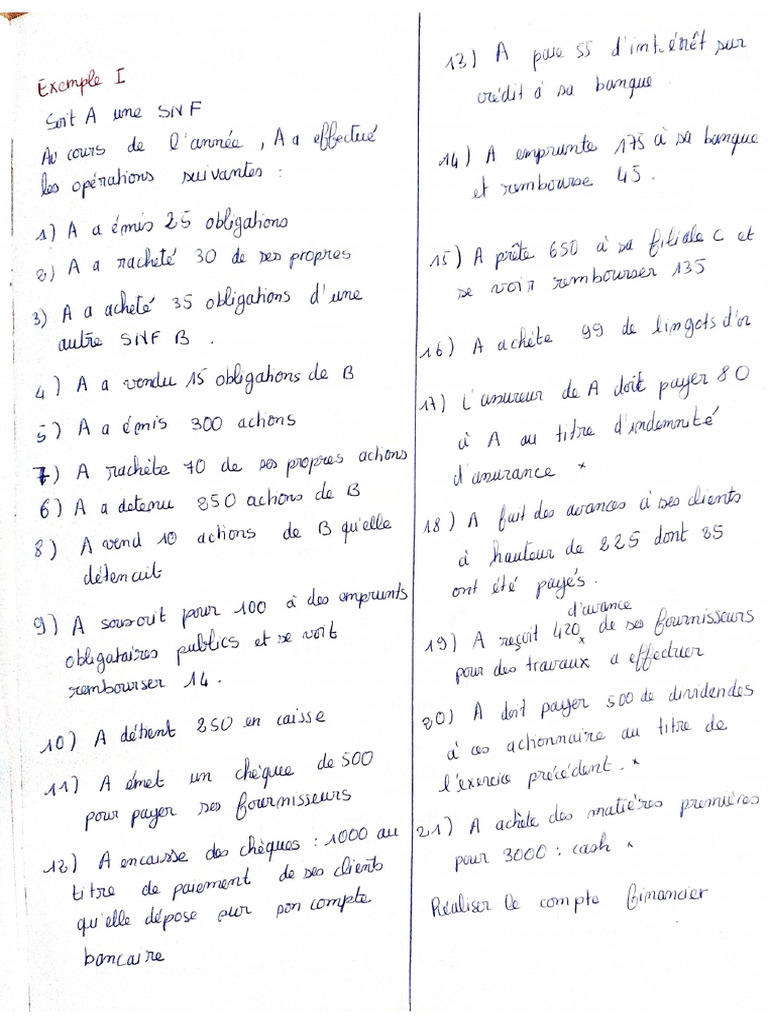 Exemple I
Soit A une SNF
Au cours de l'année, A a effectué
les opérations suivantes :
1) A a émis 25 obligations
2) A a racheté 30 de ses propres
3) A a acheté 35 obligations d'une
autre SNF B.
4) A a vendu 15 obligations de B
5) A a émis 300 actions
7) A rachète 70 de ses propres actions
6) A a detenu 250 actions de B
8) A vend 10 actions de B qu'elle
détenait
9) A souscrit pour 100 à des emprunts
obligataires publics et se voit
rembourser 14.
10) A détient 250 en caisse
11) A émet un chèque de 500
pour payer ses fournisseurs
12) A encaisse des chèques : 1000 au
titre de paiement de ses clients
qu'elle dépose sur son compte
bancaire
13) A paie 55 d'intérêt sur
crédit à sa banque.
14) A emprunte 175 à sa banque
et rembourse 45.
15) A prête 650 à sa filiale C et
se voir rembourser 135
16) A achète 99 de lingots d'or
17) L'assureur de A doit payer 80
à A au titre d'indemnité
d'assurance *
18) A fait des avances à ses clients
à hauteur de 225 dont 25
ont été payés.
19) A reçoit 420 d'avance de ses fournisseurs
pour des travaux a effectuer
20) A doit payer 500 de dividendes
à ces actionnaire au titre de
l'exercice précédent. *
21) A achète des matières premières
pour 3000 : cash *
Réaliser le compte financier